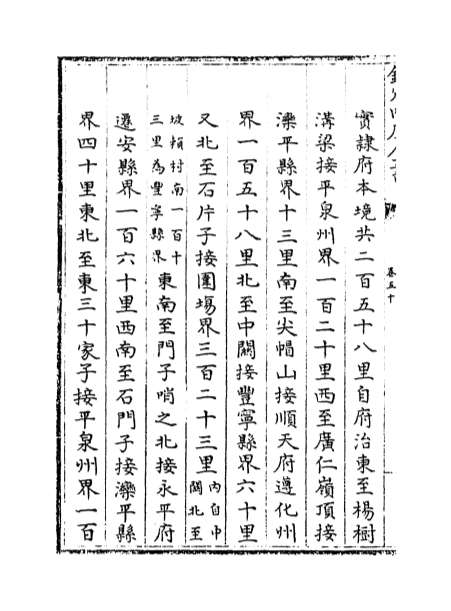 欽定四庫全書
卷五十
實隸府本境共二百五十八里自府治東至楊樹
溝梁接平泉州界一百二十里西至廣仁嶺頂接
灤平縣界十三里南至尖帽山接順天府遵化州
界一百五十八里北至中關接豐寧縣界六十里
又北至石片子接圍場界三百二十三里內自中關北至
坡賴村南一百十三里為豐寧縣界東南至門子哨之北接永平府
遷安縣界一百六十里西南至石門子接灤平縣
界四十里東北至東三十家子接平泉州界一百